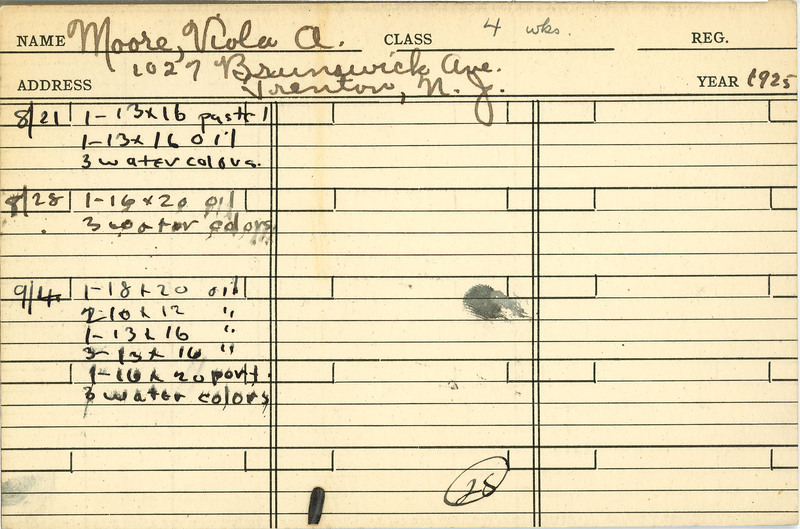 NAME Moore, Viola A. CLASS 4 wks. REG.
ADDRESS 1027 Brunswick Ave. YEAR 1925
Trenton, N. J.
8/21 1-13x16 pastel
1-13x16 oil
3 water colors.
8/28 1-16x20 oil
3 water colors
9/4 1-18x20 oil
2-10x12 "
1-13x16 "
3-13x16 "
1-16x20 port.
3 water colors
28